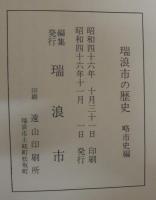 瑞浪市の歴史 略市史編
昭和四十六年 十月三十一日 印刷
昭和四十六年十一月 一日 発行
編集
発行 瑞浪市
印刷 遠山印刷所
瑞浪市土岐町